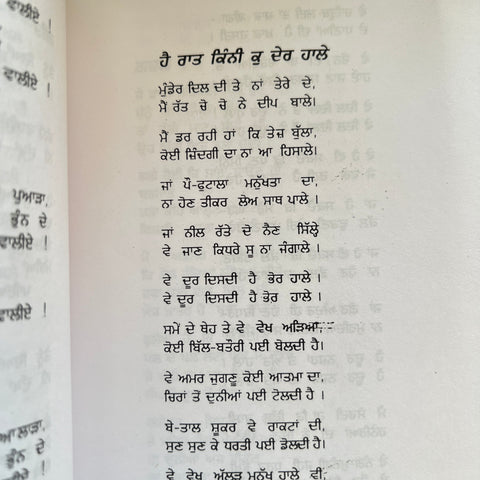 ਵਾਲੀਏ !
ਵਾਲੀਏ !
ਪੁਆੜਾ,
ਭੁੰਨ ਦੇ
ਵਾਲੀਏ !
ਆਲਾੜਾ,
ਭੁੰਨ ਦੇ
ਵਾਲੀਏ !
ਹੈ ਰਾਤ ਕਿੰਨੀ ਕੁ ਦੇਰ ਹਾਲੇ
ਮੁੰਡੇਰ ਦਿਲ ਦੀ ਤੇ ਨਾਂ ਤੇਰੇ ਦੇ,
ਮੈਂ ਰੱਤ ਚੋ ਚੋ ਨੇ ਦੀਪ ਬਾਲੇ।
ਮੈਂ ਡਰ ਰਹੀ ਹਾਂ ਕਿ ਤੇਜ਼ ਬੁੱਲਾ,
ਕੋਈ ਜ਼ਿੰਦਗੀ ਦਾ ਨਾ ਆ ਹਿਸਾਲੇ।
ਜਾਂ ਪੌ-ਫੁਟਾਲਾ ਮਨੁੱਖਤਾ ਦਾ,
ਨਾ ਹੋਣ ਤੀਕਰ ਲੇਅ ਸਾਥ ਪਾਲੇ।
ਜਾਂ ਨੀਲ ਰੱਤੇ ਦੋ ਨੈਣ ਸਿੱਲ੍ਹੇ
ਵੇ ਜਾਣ ਕਿਧਰੇ ਸੂ ਨਾ ਜੰਗਾਲੇ।
ਵੇ ਦੂਰ ਦਿਸਦੀ ਹੈ ਭੋਰ ਹਾਲੇ।
ਵੇ ਦੂਰ ਦਿਸਦੀ ਹੈ ਭੋਰ ਹਾਲੇ।
ਸਮੇਂ ਦੇ ਥੇਹ ਤੇ ਵੇ ਵੇਖ ਅੜਿਆ,
ਕੋਈ ਬਿੱਲ-ਬਤੌਰੀ ਪਈ ਬੋਲਦੀ ਹੈ।
ਵੇ ਅਮਰ ਜੁਗਣੂ ਕੋਈ ਆਤਮਾ ਦਾ,
ਚਿਰਾਂ ਤੋਂ ਦੁਨੀਆਂ ਪਈ ਟੋਲਦੀ ਹੈ।
ਬੇ-ਤਾਲ ਸ਼ੂਕਰ ਵੇ ਰਾਕਟਾਂ ਦੀ,
ਸੁਣ ਸੁਣ ਕੇ ਧਰਤੀ ਪਈ ਡੋਲਦੀ ਹੈ।
ਵੇ ਵੇਖ ਅੱਲੜ ਮਨੁੱਖ ਹਾਲੇ ਵੀ,